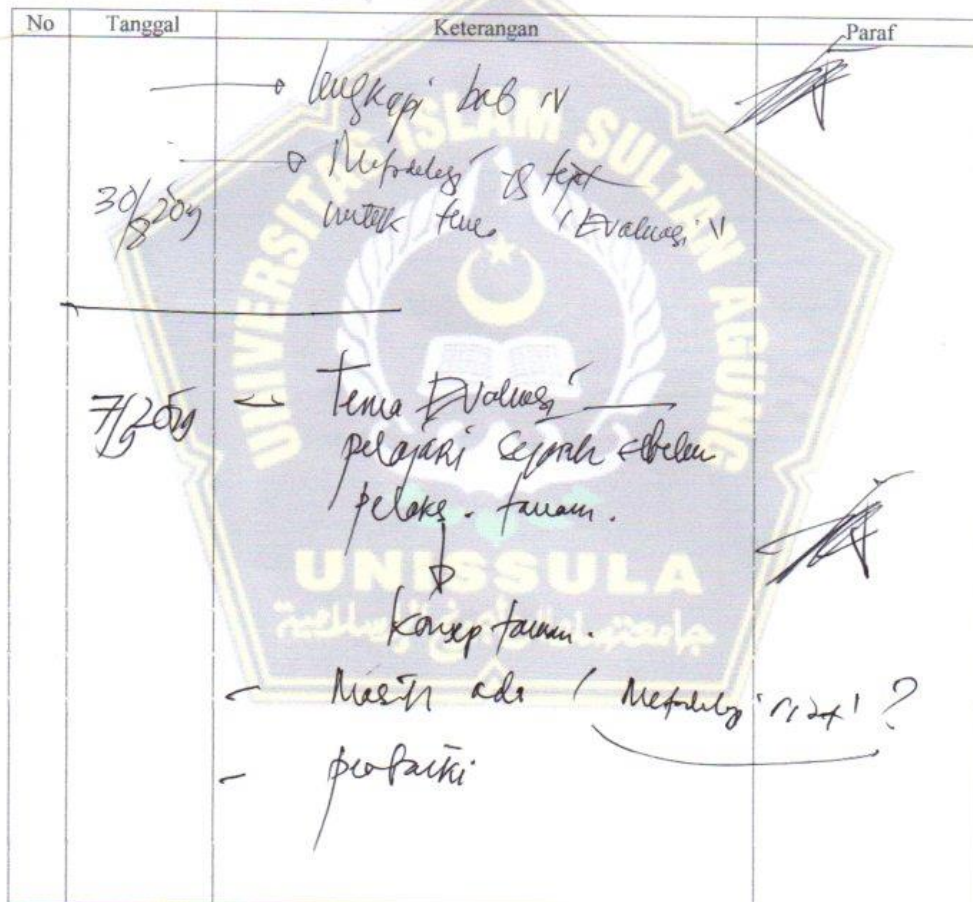 No Tanggal Keterangan Paraf
lengkapi bab IV
Metodologi yg tepat
30/8 2019 untuk tema "Evaluasi"
7/9 2019 - Tema Evaluasi
pelajari sejarah sebelum
pelaks. taman.
konsep taman.
- Masih ada ( Metodologi ?
- perbaiki
UNIVERSITAS ISLAM SULTAN AGUNG
UNISSULA
جامعة سلطان أجونج الإسلامية